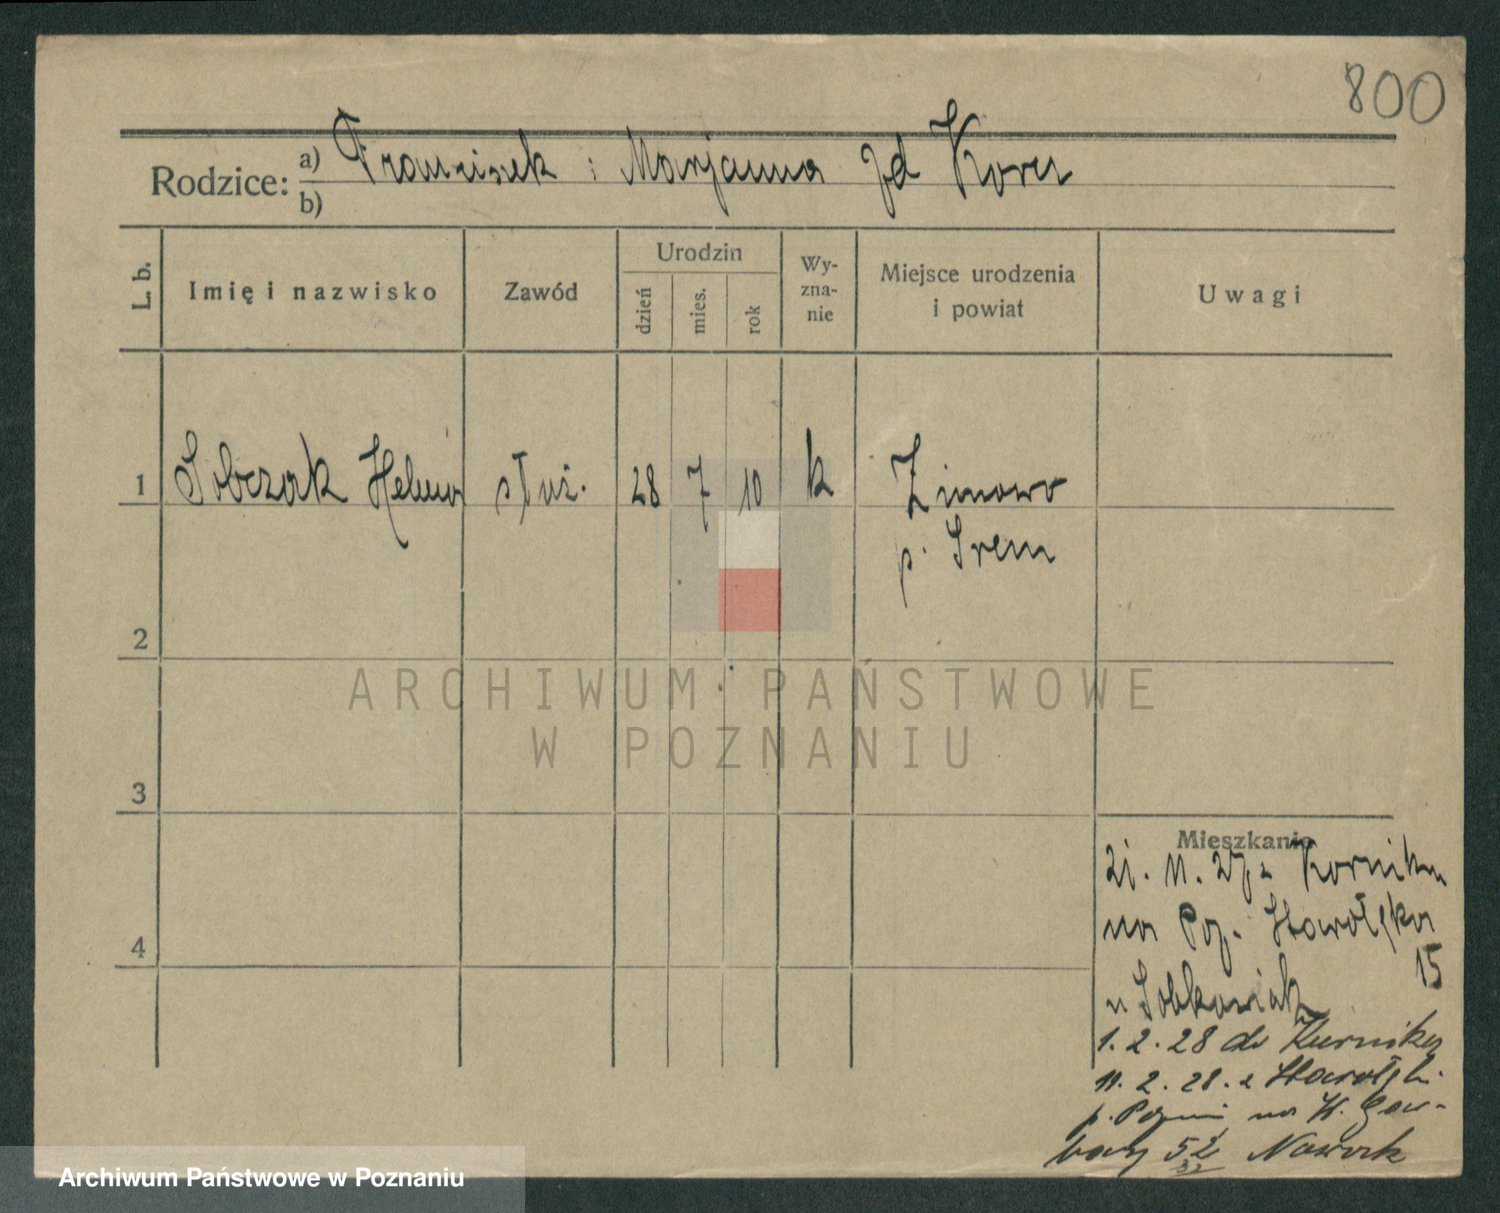 800
Rodzice: a) Franciszek i Marjanna
b)
L. b. Imię i nazwisko Zawód Urodzin dzień mies. rok Wy-zna-nie Miejsce urodzenia i powiat Uwagi
1 Sobczak Helena służ. 28 7 10 k Zimowo
p. Śrem
2
ARCHIWUM PAŃSTWOWE
W POZNANIU
3
4
Mieszkanie
21. 11. 27 z Kornika
na Poz. Starołęka
15
u Sobkowiak
1. 2. 28 do Kurnika
11. 2. 28. z Starołęki
p. Poznań na W. Gar-
bary 52 Nowak
32
Archiwum Państwowe w Poznaniu